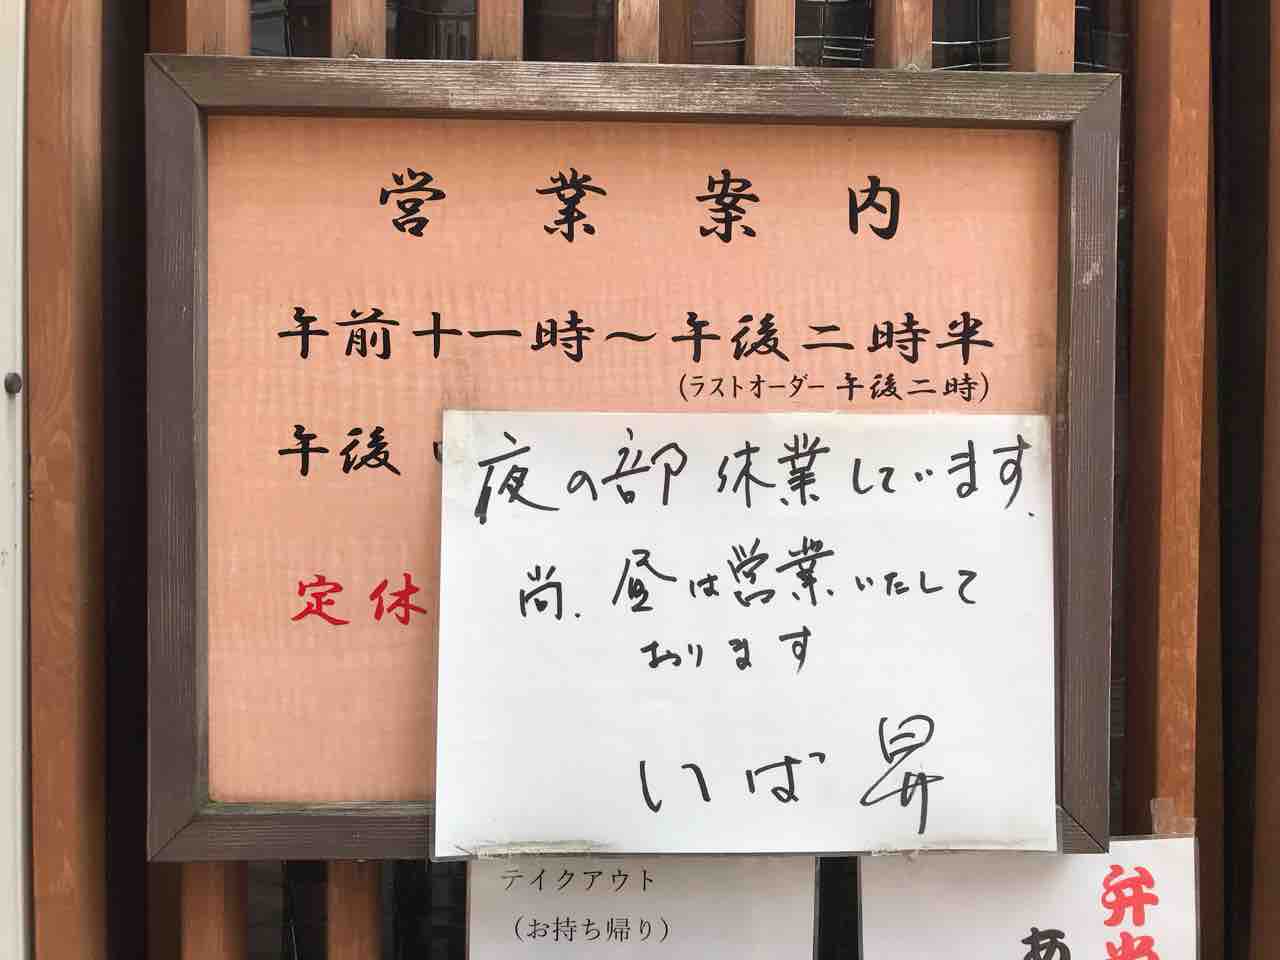 営業案内
午前十一時～午後二時半
(ラストオーダー 午後二時)
午後
定休
夜の部 休業しています.
尚. 昼は営業いたして
おります
いば昇
テイクアウト
(お持ち帰り)
弁当
あ